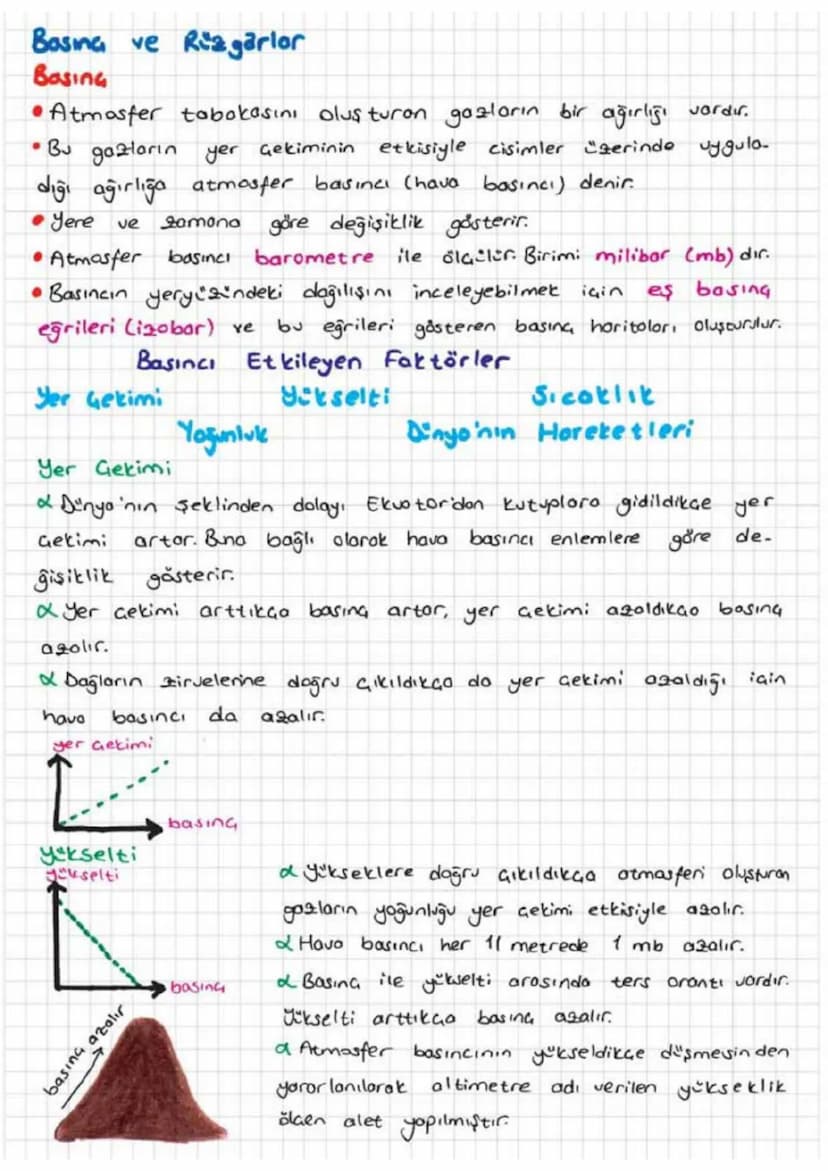 Basınç ve Rüzgarlar
Basınç
• Atmosfer tabakasını oluşturan gazların bir ağırlığı vardır.
• Bu gazların yer çekiminin etkisiyle cisimler üzerinde uygula-
dığı ağırlığa atmosfer basıncı (hava basıncı) denir.
• Yere ve zamana göre değişiklik gösterir.
• Atmosfer basıncı barometre ile ölçülür. Birimi milibar (mb) dır.
• Basıncın yeryüzündeki dağılışını inceleyebilmek için eş basınç
eğrileri (izobar) ve bu eğrileri gösteren basınç haritaları oluşturulur.
Basıncı Etkileyen Faktörler
Yer Çekimi Yükselti Sıcaklık
Yoğunluk Dünya'nın Hareketleri
Yer Çekimi
α Dünya'nın şeklinden dolayı Ekvator'dan kutuplara gidildikçe yer
çekimi artar. Buna bağlı olarak hava basıncı enlemlere göre de-
ğişiklik gösterir.
α Yer çekimi arttıkça basınç artar, yer çekimi azaldıkça basınç
azalır.
α Dağların zirvelerine doğru çıkıldıkça da yer çekimi azaldığı için
hava basıncı da azalır.
yer çekimi
basınç
Yükselti
yükselti
basınç
α Yükseklere doğru çıkıldıkça atmosferi oluşturan
gazların yoğunluğu yer çekimi etkisiyle azalır.
α Hava basıncı her 11 metrede 1 mb azalır.
α Basınç ile yükselti arasında ters orantı vardır.
Yükselti arttıkça basınç azalır.
α Atmosfer basıncının yükseldikçe düşmesinden
yararlanılarak altimetre adı verilen yükseklik
ölçen alet yapılmıştır.
basınç azalır